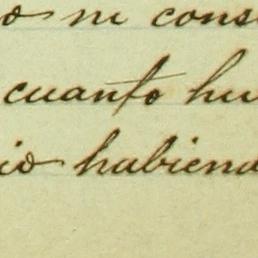 o ni cons
cuanto hu
io habiend